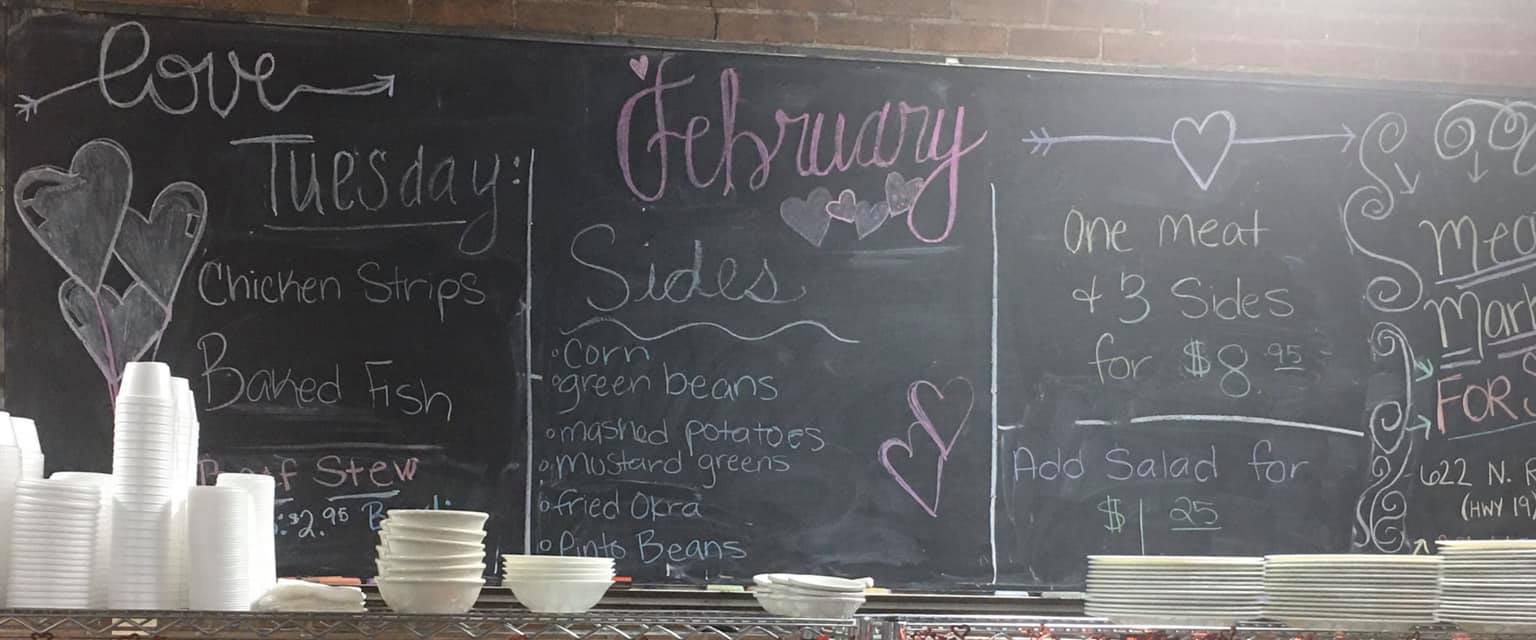 love
Tuesday:
Chicken Strips
Baked Fish
Beef Stew
$2.95
February
Sides
corn
green beans
mashed potatoes
mustard greens
fried Okra
Pinto Beans
One meat
& 3 Sides
for $8.95
Add Salad for
$1.25
FOR
622 N.
(HWY 19/